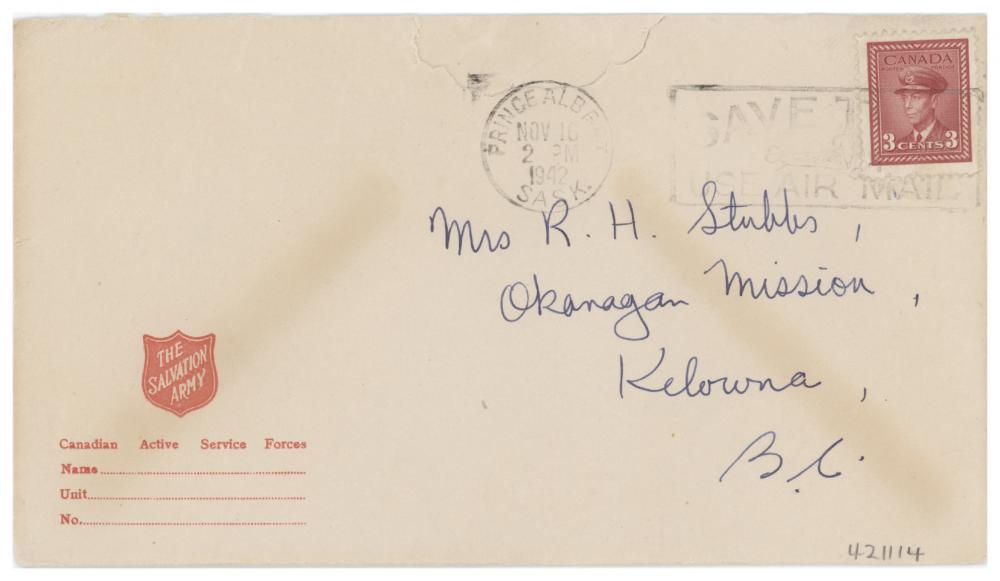 PRINCE ALBERT
NOV 16
2 PM
1942
SASK.
SAVE
USE AIR MAIL
CANADA
POSTES POSTAGE
3 CENTS 3
Mrs R. H. Stubbs,
Okanagan Mission,
Kelowna,
B.C.
THE
SALVATION
ARMY
Canadian Active Service Forces
Name
Unit
No.
421114